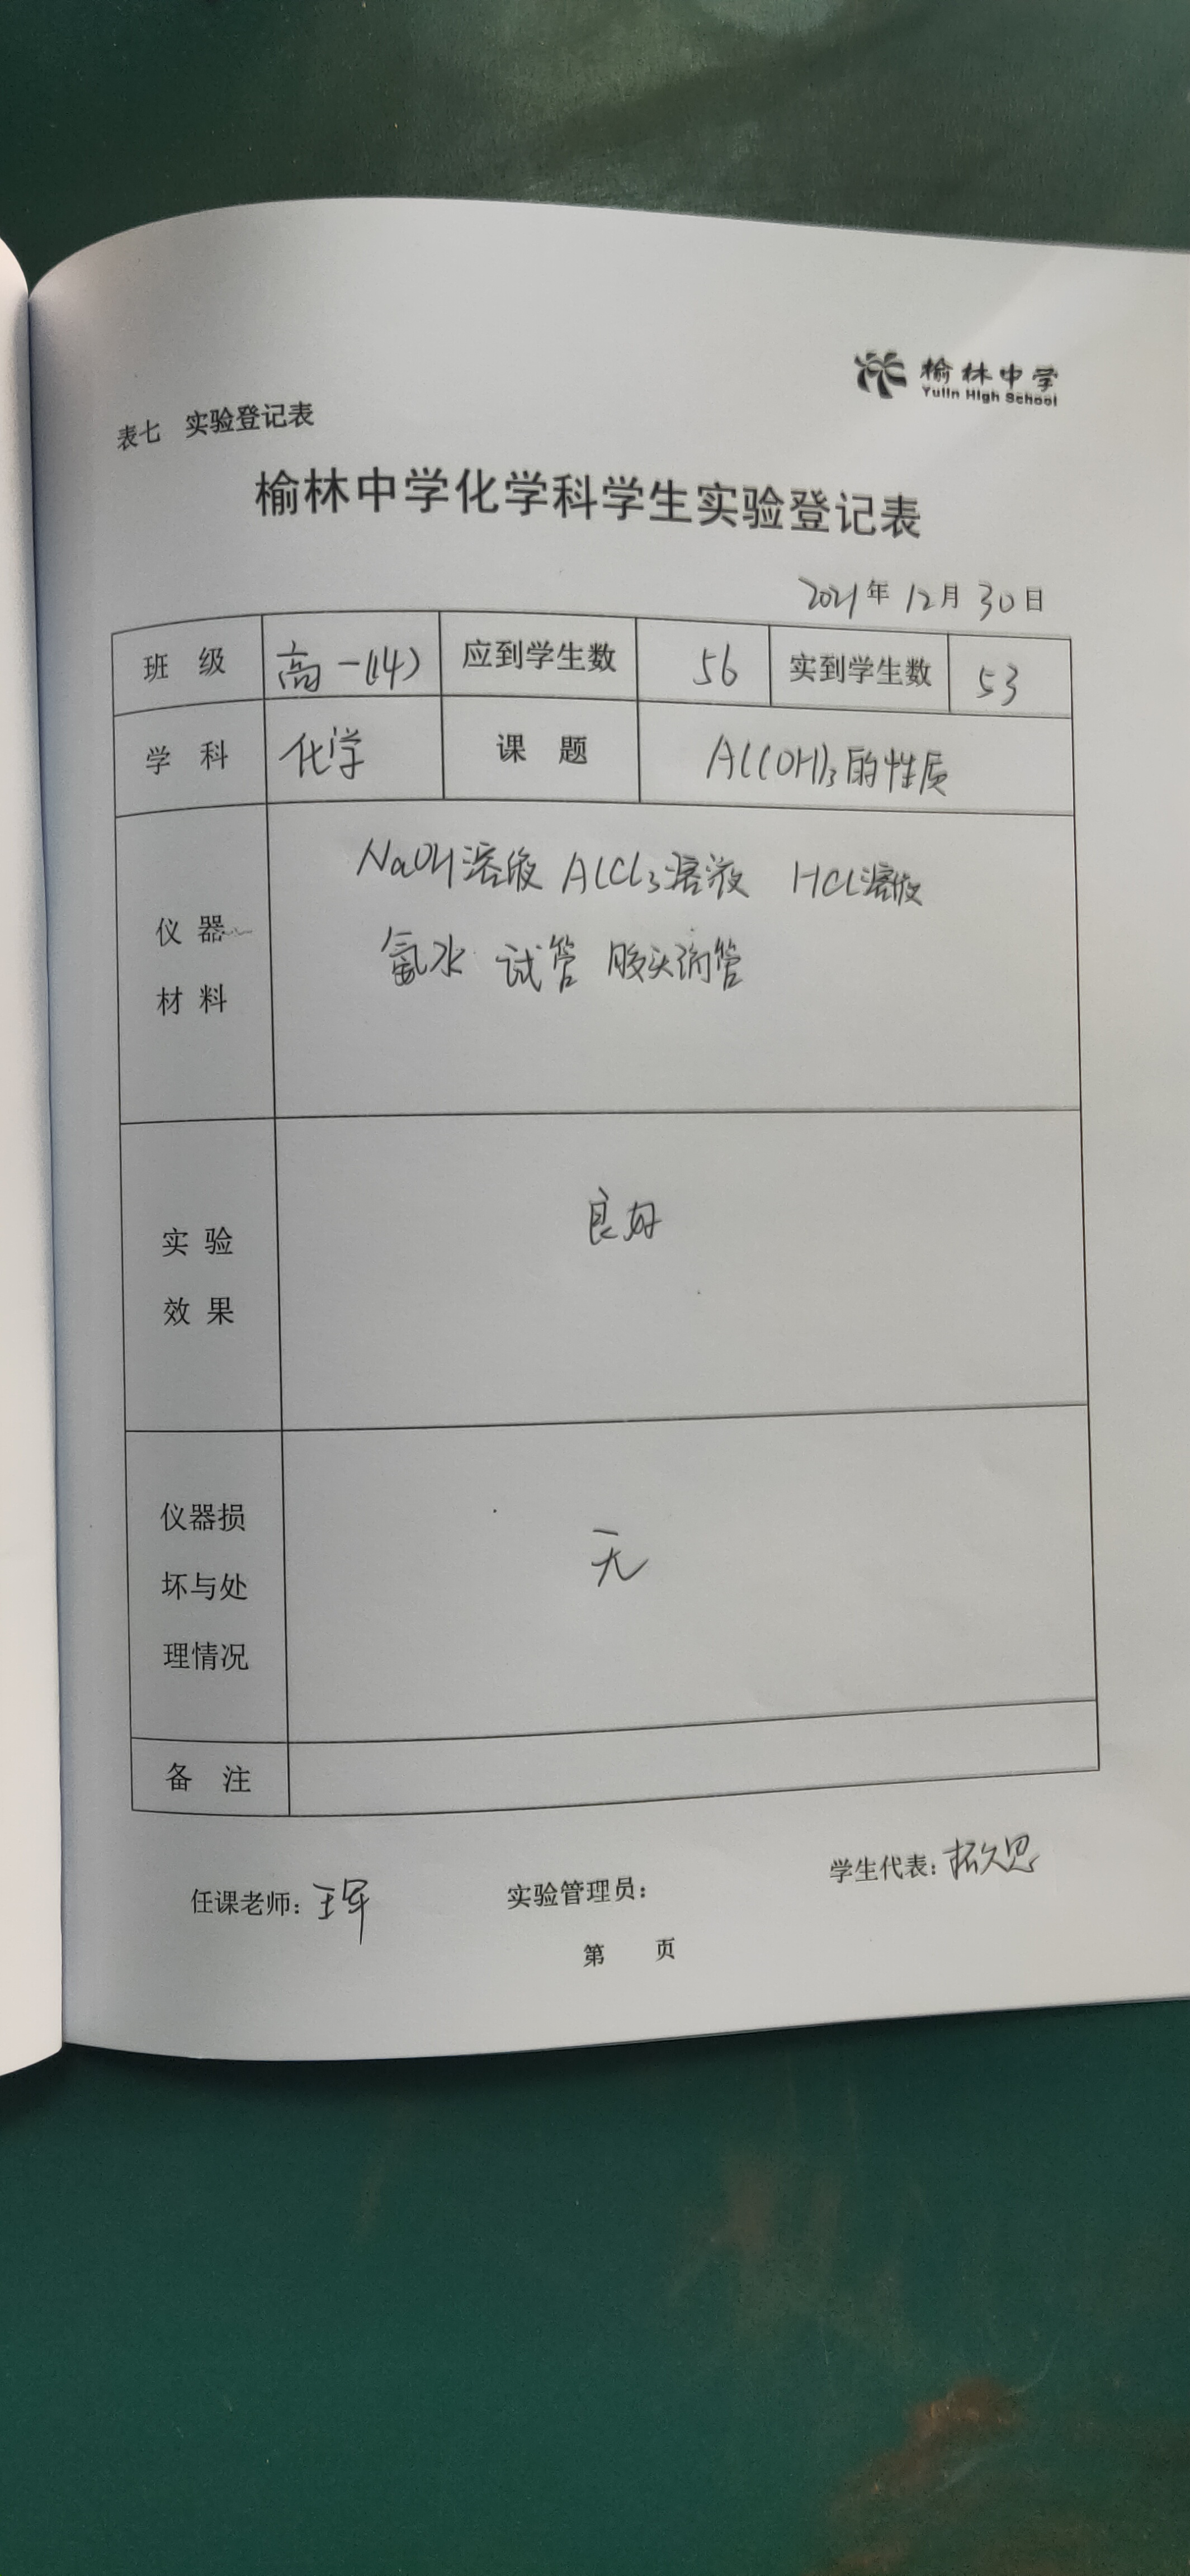 榆林中学
Yulin High School
表七 实验登记表
榆林中学化学科学生实验登记表
2021年 12月 30日
班 级 高一(14) 应到学生数 56 实到学生数 53
学 科 化学 课 题 Al(OH)3的性质
仪 器
材 料
NaOH溶液 AlCl3溶液 HCl溶液
氨水 试管 胶头滴管
实 验
效 果
良好
仪器损
坏与处
理情况
无
备 注
任课老师: 王军 实验管理员: 学生代表:
第 页